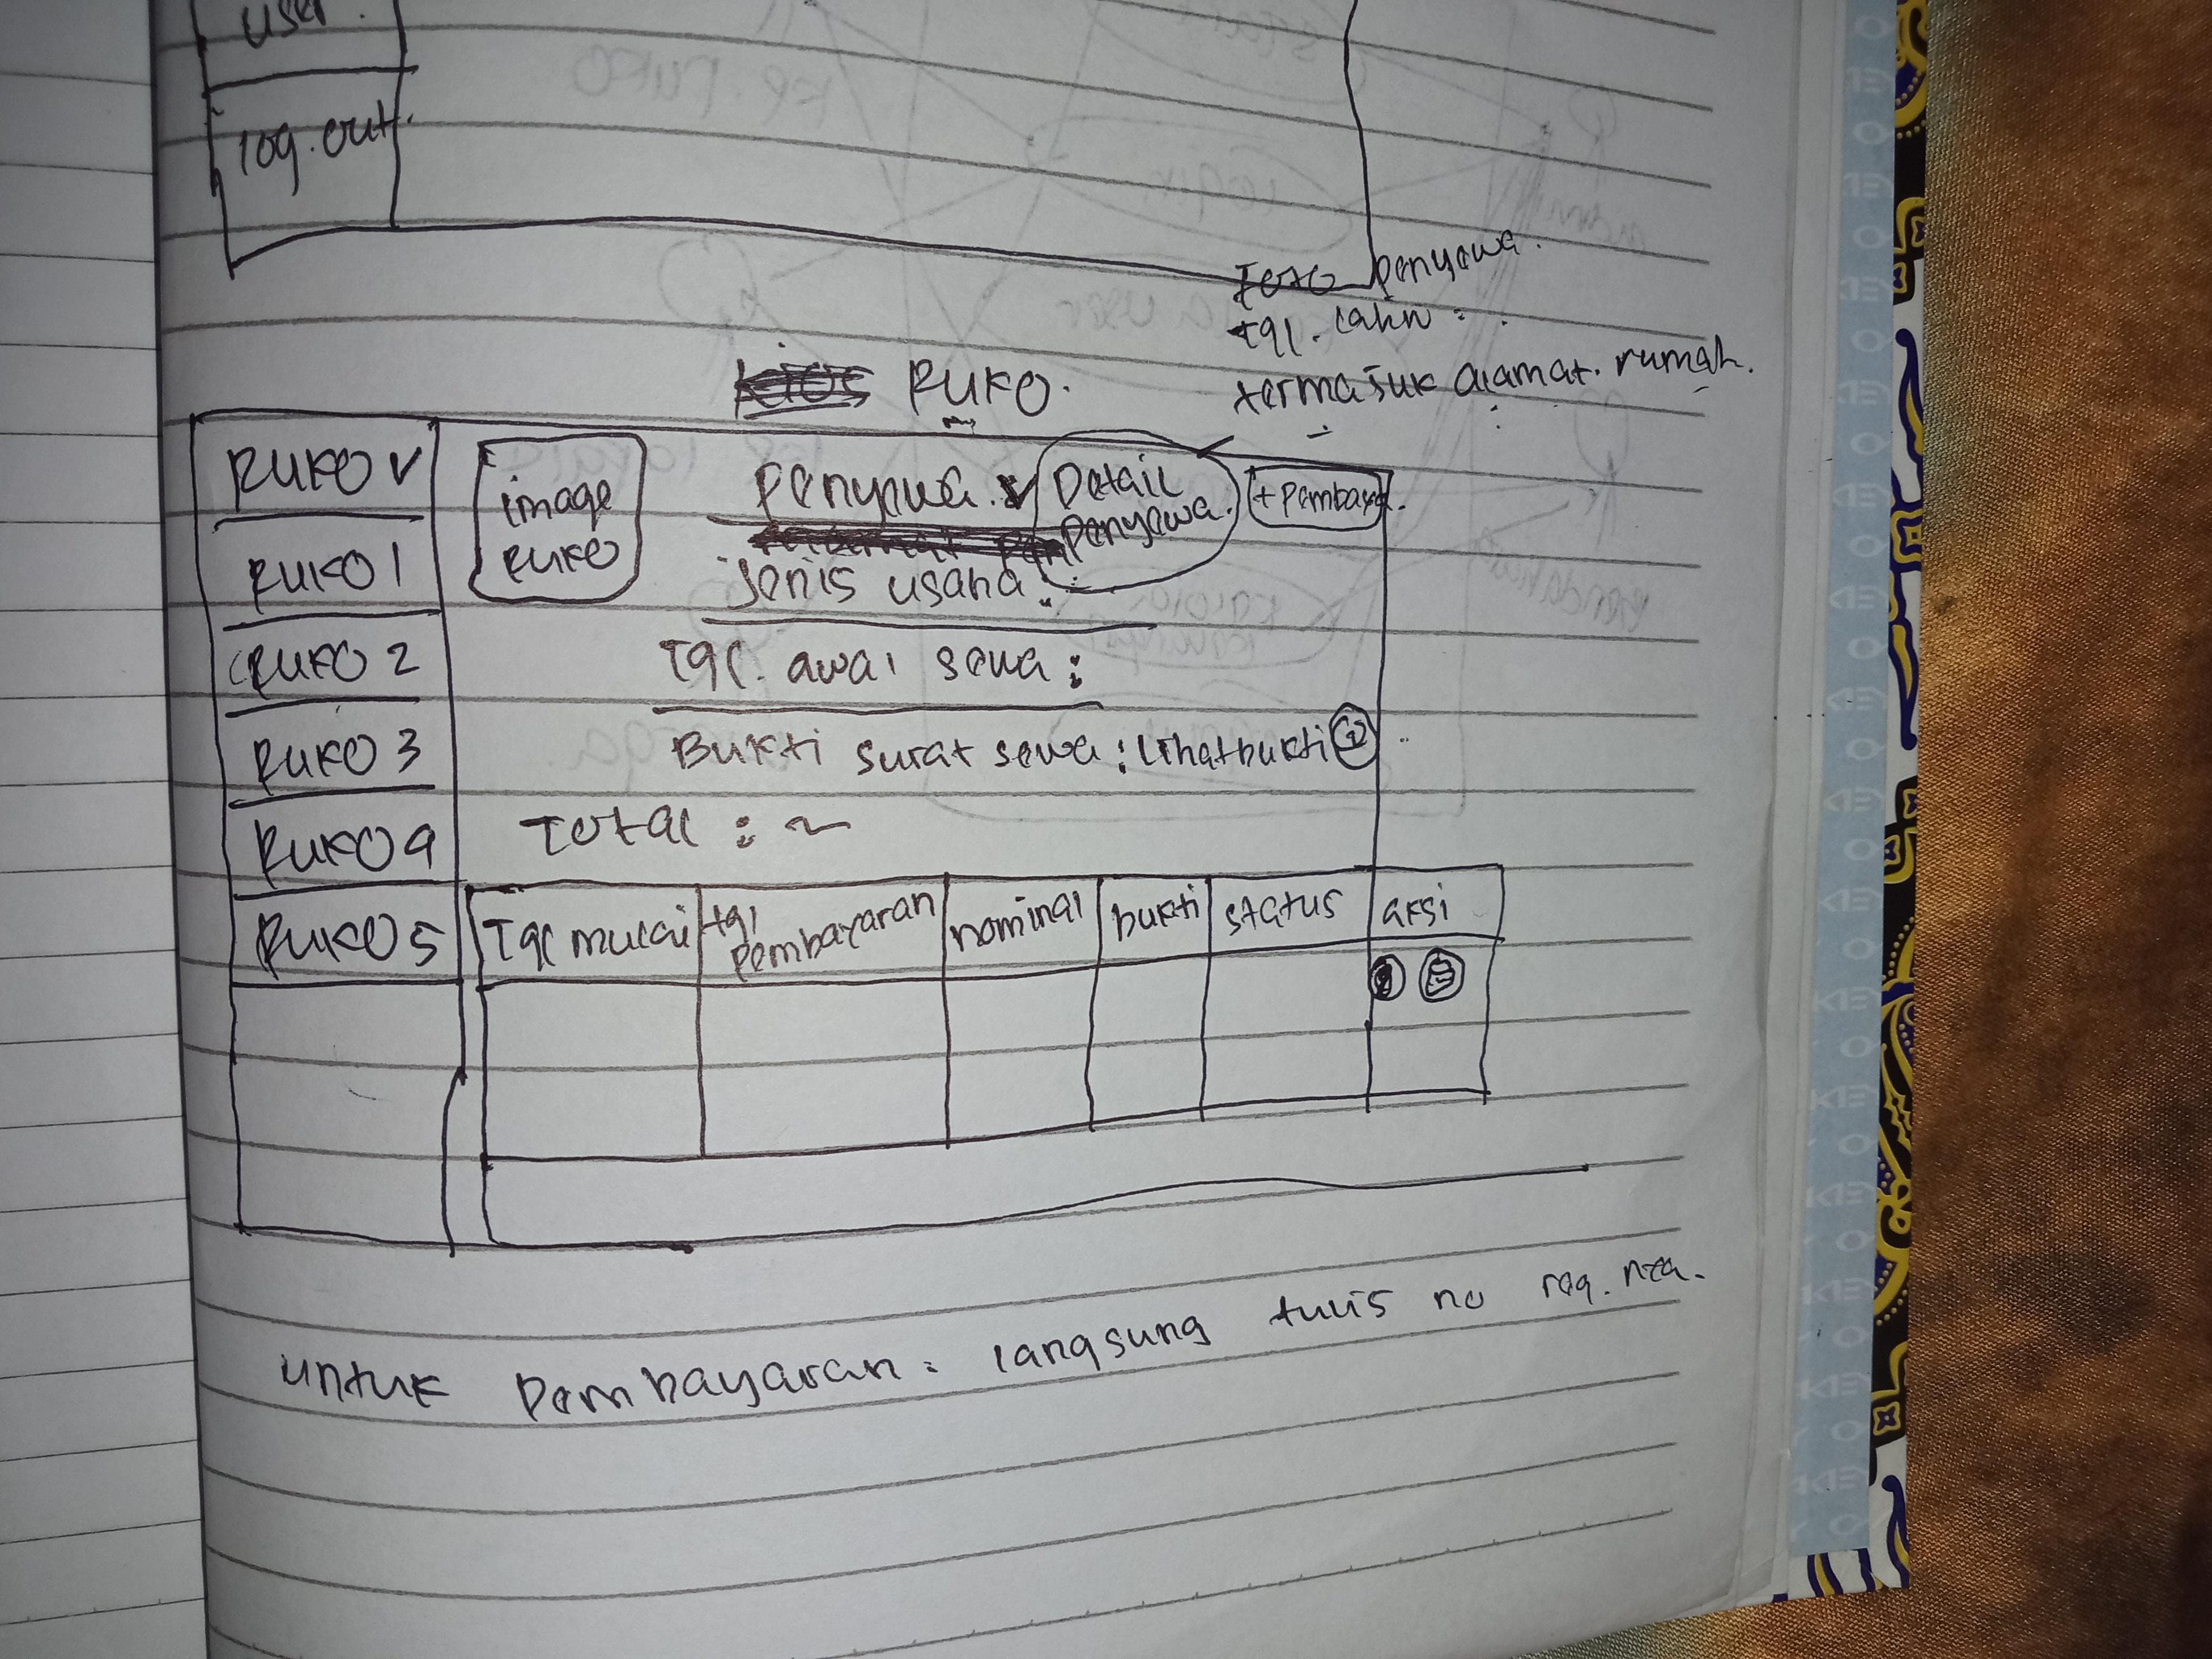 user.
log.out.
Foto penyewa.
tgl. lahir :
termasuk alamat. rumah.
Kios RUKO.
RUKO v
RUKO 1
RUKO 2
RUKO 3
RUKO 4
RUKO 5
image
RUKO
Penyewa. v
Detail
Penyewa.
+ Pembaya.
Jenis usaha :
Tgl. awal sewa :
Bukti surat sewa : Lihat bukti
Total : ~
Tgl mulai tgl pembayaran nominal bukti status aksi
untuk Pembayaran : langsung tulis no req. nya.